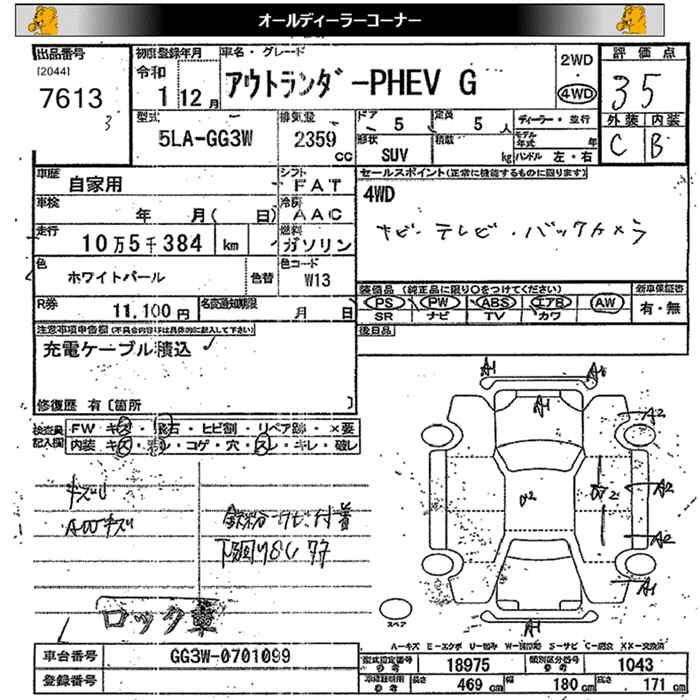 オールディーラーコーナー
出品番号
[2044]
7613
3
初度登録年月
令和
1 12 月
車名・グレード
アウトランダーPHEV G
2WD
4WD
評価点
35
外装 内装
C B
型式
5LA-GG3W
排気量
2359
cc
ドア
5
定員
5 人
形状
SUV
積載
kg
ディーラー・並行
モデル年式 年
ハンドル 左・右
車歴
自家用
シフト
FAT
車検
年 月( 日)
冷房
AAC
走行
10万5千384 km
燃料
ガソリン
色
ホワイトパール
色替
色コード
W13
R券
11,100 円
名変通知期限
月 日
セールスポイント(正常に機能するものに限ります)
4WD
ナビ・テレビ・バックカメラ
装備品 (純正品に限り○をつけてください)
PS PW ABS エアB AW
SR ナビ TV カワ
新車保証書
有・無
後日品
注意事項申告欄(不具合内容等は具体的に記入して下さい)
充電ケーブル積込
修復歴 有〔箇所 〕
検査員記入欄
FW・キズ・飛石・ヒビ割・リペア跡・×要
内装・キズ・汚レ・コゲ・穴・スレ・キレ・破レ
AWキズ
鉄粉・サビ付着
ロック車
A1
A1
A2
A2
A2
A1
A1
スペア
車台番号
GG3W-0701099
登録番号
A-キズ E-エクボ U-凹み W-補修跡 S-サビ C-腐食 XX-交換済
型式指定番号
参考
18975
類別区分番号
参考
1043
車検証明用
参考
長さ
469 cm
幅
180 cm
高さ
171 cm